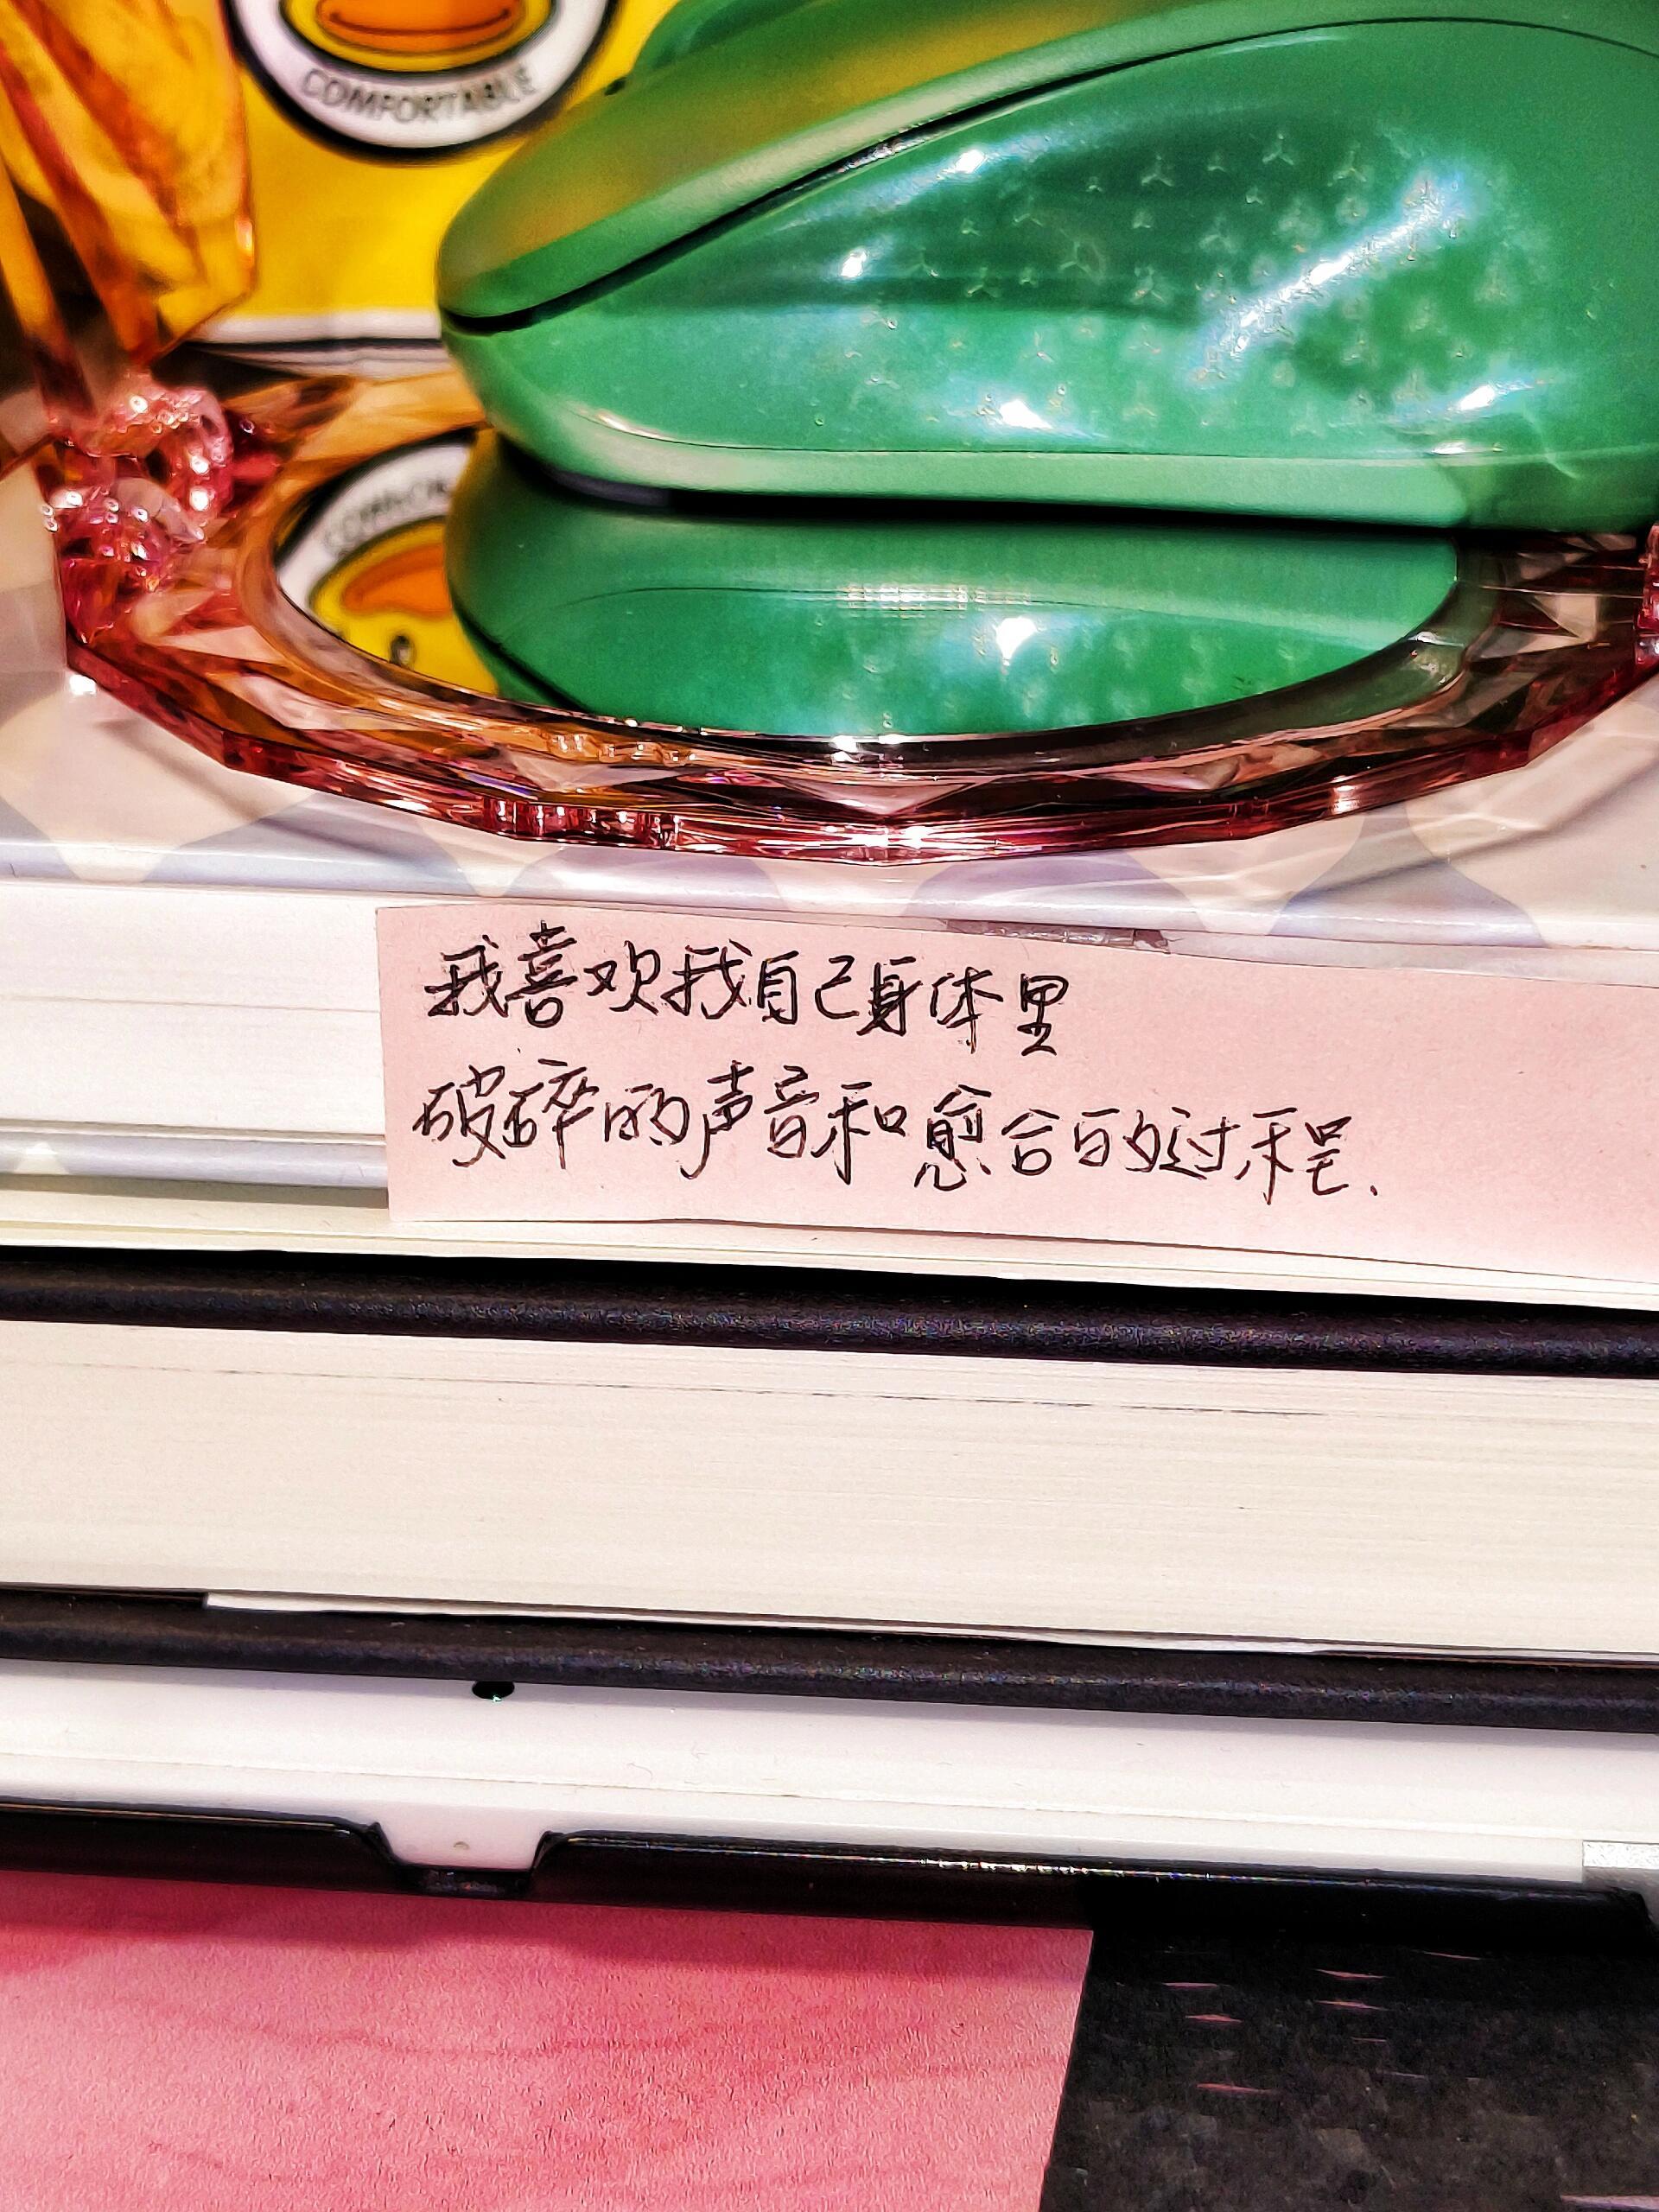 COMFORTABLE
我喜欢我自己身体里
破碎的声音和愈合的过程.